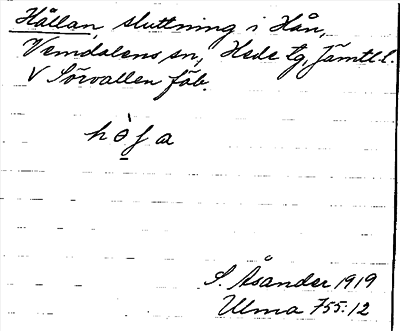 Hållan, sluttning i Hån,
Vemdalens sn, Hede tg, Jämtl. l.
V Sörvallen fäb.
S. Åsander 1919
Ulma 755:12